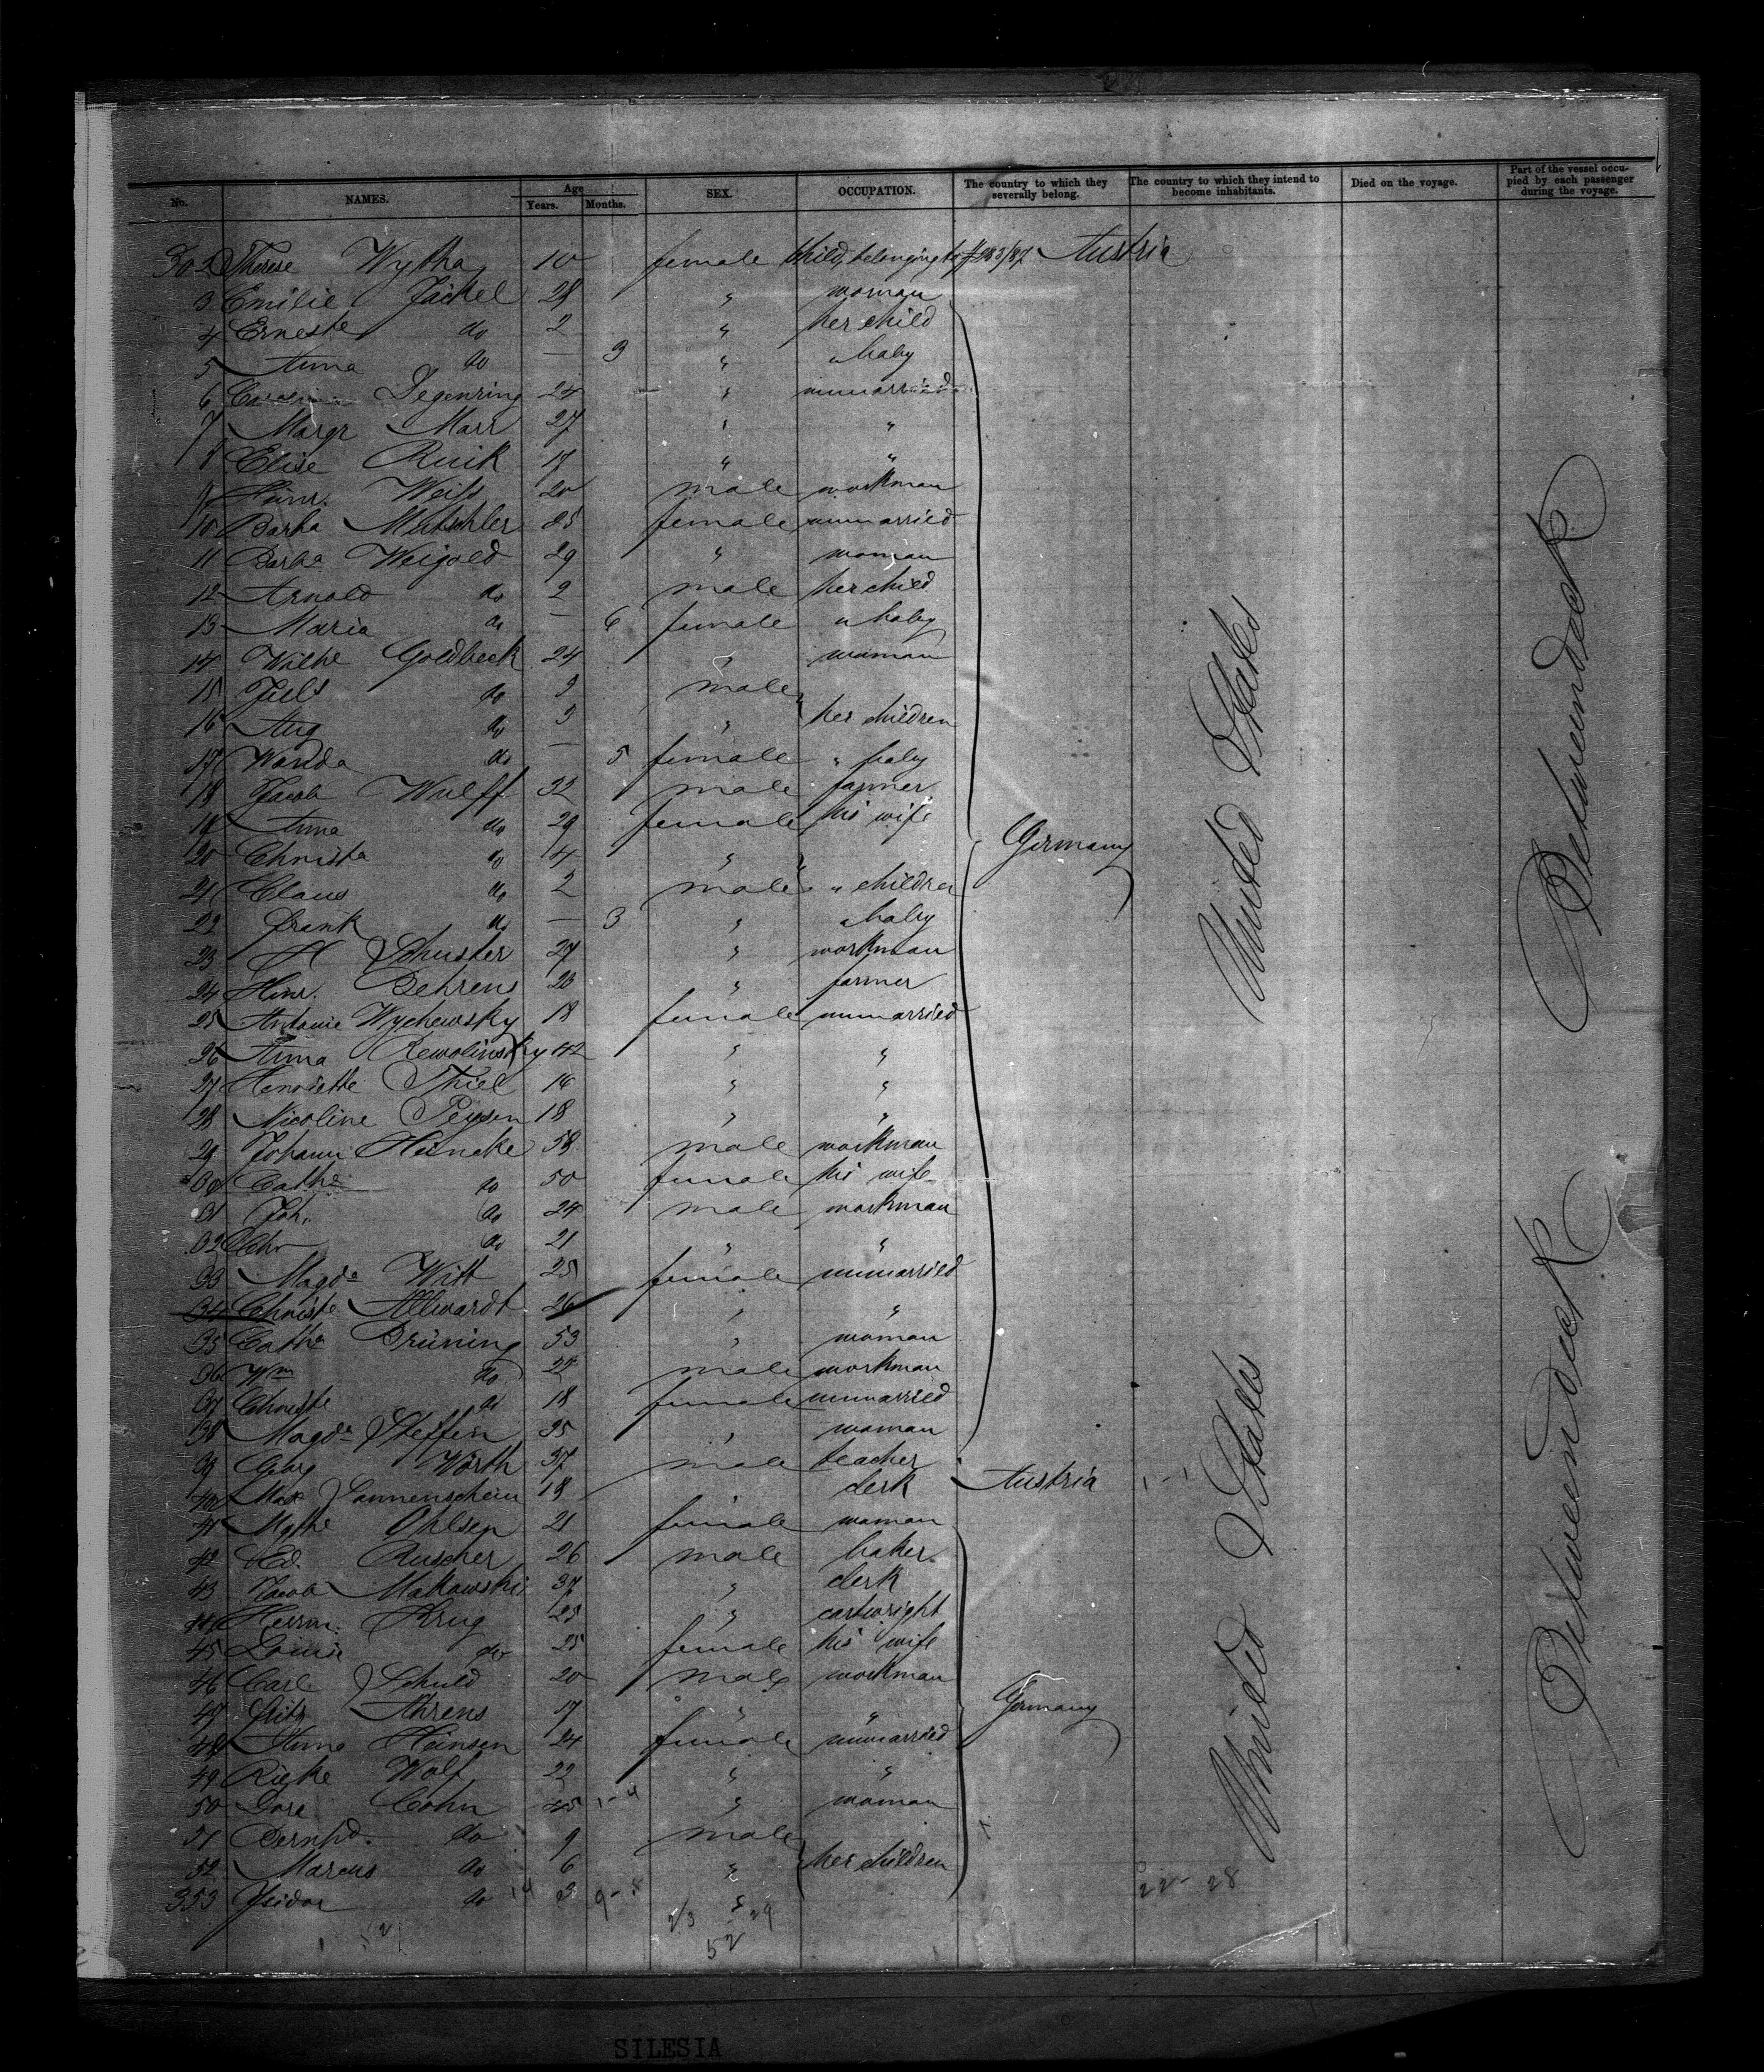 No. NAMES. Age Years. Months. SEX. OCCUPATION. The country to which they severally belong. The country to which they intend to become inhabitants. Died on the voyage. Part of the vessel occupied by each passenger during the voyage.
302 Therese Wytha 10 female child, belonging to # 283/87 Austria
3 Emilie Jäckel 28 " woman
4 Ernest do 2 " her child
5 Anna do — 3 " " baby
6 Degenring 24 " unmarried
7 Margr Marr 27 " "
8 Elise Ruik 17 " "
9 Heinr. Weiss 20 male workman
10 Barba 25 female unmarried
11 Barba Weigold 29 " woman
12 Arnold do 2 male her child
13 Maria do — 6 female " baby
14 Wilhe Goldbeck 24 " woman
15 do male
16 Aug do 3 " her children
17 Wanda do — 5 female " baby
18 Jacob Wulff 32 male farmer
19 Anna do 29 female his wife
20 Christa do 4 "
21 Claus do 2 male " children
22 Frank do — 3 " " baby
23 H Schuster 27 " workman
24 Hinr. Behrens 23 " farmer
25 Antonie Wychewsky 18 female unmarried
26 Anna Rewolinsky 42 " "
27 Henriette Thiel 16 " "
28 Nicoline 18 " "
29 Johann Heincke 58 male workman
30 Catha do 50 female his wife
31 Joh. do 24 male workman
32 Chr do 21 " "
33 Magda Witt 25 female unmarried
34 Christe Allwardt 26 " "
35 Catha Brüning 53 " woman
36 Wm do 22 male workman
37 Christe do 18 female unmarried
38 Magda Steffen 35 " woman
39 Georg Wörth 37 male teacher
40 Max Sonnenschein 18 " clerk Austria
41 Mathe Ohlsen 21 female woman
42 Ed. Ruscher 26 male baker
43 Jacob Makowski 37 " clerk
44 Herrm. Krug 23 " cartwright
45 Louise do 25 female his wife
46 Carl Schuld 20 male workman
47 Fritz Ahrens 17 " "
48 Anna Heinsen 24 female unmarried
49 Rieke Wolf 22 " "
50 Dora Cohn 45 " woman
51 Bernhd. do 9 male
52 Marcus do 6 " her children
353 Isidor do 3 "
Germany
Germany
United States
United States
Betweendeck
Betweendeck
22 - 28
52
SILESIA